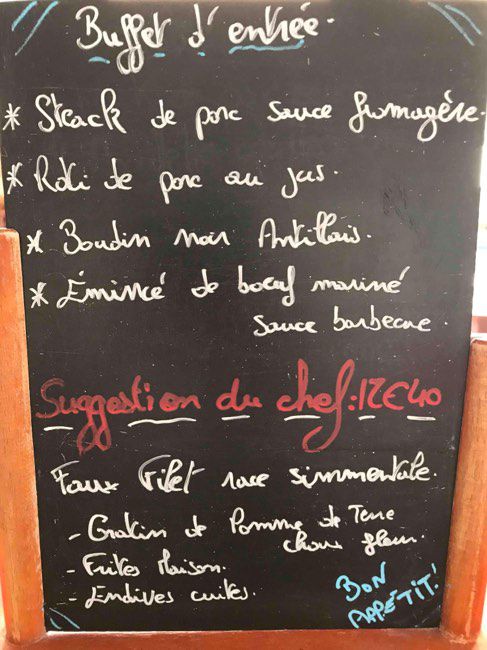 Buffet d'entrée.
* Steack de porc sauce fromagère.
* Rôti de porc au jus.
* Boudin noir Antillais.
* Émincé de boeuf mariné
sauce barbecue.
Suggestion du chef: 12€40
Faux Filet race simmentale.
- Gratin de Pomme de Terre
chou fleur.
- Frites Maison.
- Endives cuites.
BON
APPÉTIT!